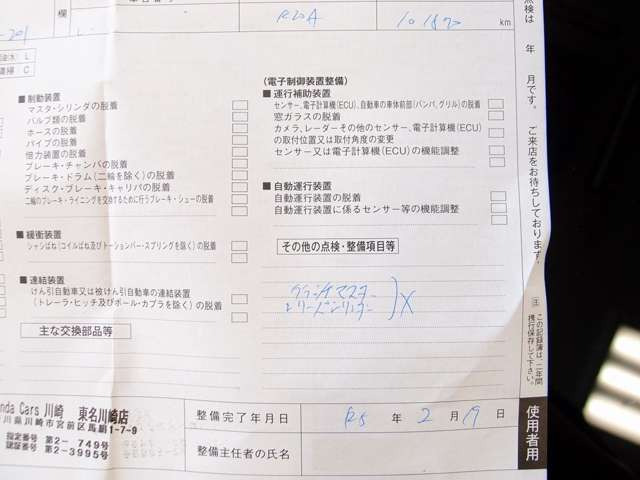 R20A
101870 km
-201
欄
点検は 年 月です。 ご来店をお待ちしております。
■制動装置
マスタ・シリンダの脱着
バルブ類の脱着
ホースの脱着
パイプの脱着
倍力装置の脱着
ブレーキ・チャンバの脱着
ブレーキ・ドラム(二輪を除く)の脱着
ディスク・ブレーキ・キャリパの脱着
二輪のブレーキ・ライニングを交換するために行うブレーキ・シューの脱着
■緩衝装置
シャシばね(コイルばね及びトーションバー・スプリングを除く)の脱着
■連結装置
けん引自動車又は被けん引自動車の連結装置
(トレーラ・ヒッチ及びボール・カプラを除く)の脱着
主な交換部品等
(電子制御装置整備)
■運行補助装置
センサー、電子計算機(ECU)、自動車の車体前部(バンパ、グリル)の脱着
窓ガラスの脱着
カメラ、レーダーその他のセンサー、電子計算機(ECU)
の取付位置又は取付角度の変更
センサー又は電子計算機(ECU)の機能調整
■自動運行装置
自動運行装置の脱着
自動運行装置に係るセンサー等の機能調整
その他の点検・整備項目等
㊟ この記録簿は、二年間
携行保存して下さい。
nda Cars 川崎 東名川崎店
川県川崎市宮前区馬絹1-7-9
指定番号 第2- 749号
認証番号 第2-3995号
整備完了年月日 R5 年 2 月 19 日
整備主任者の氏名
使用者用